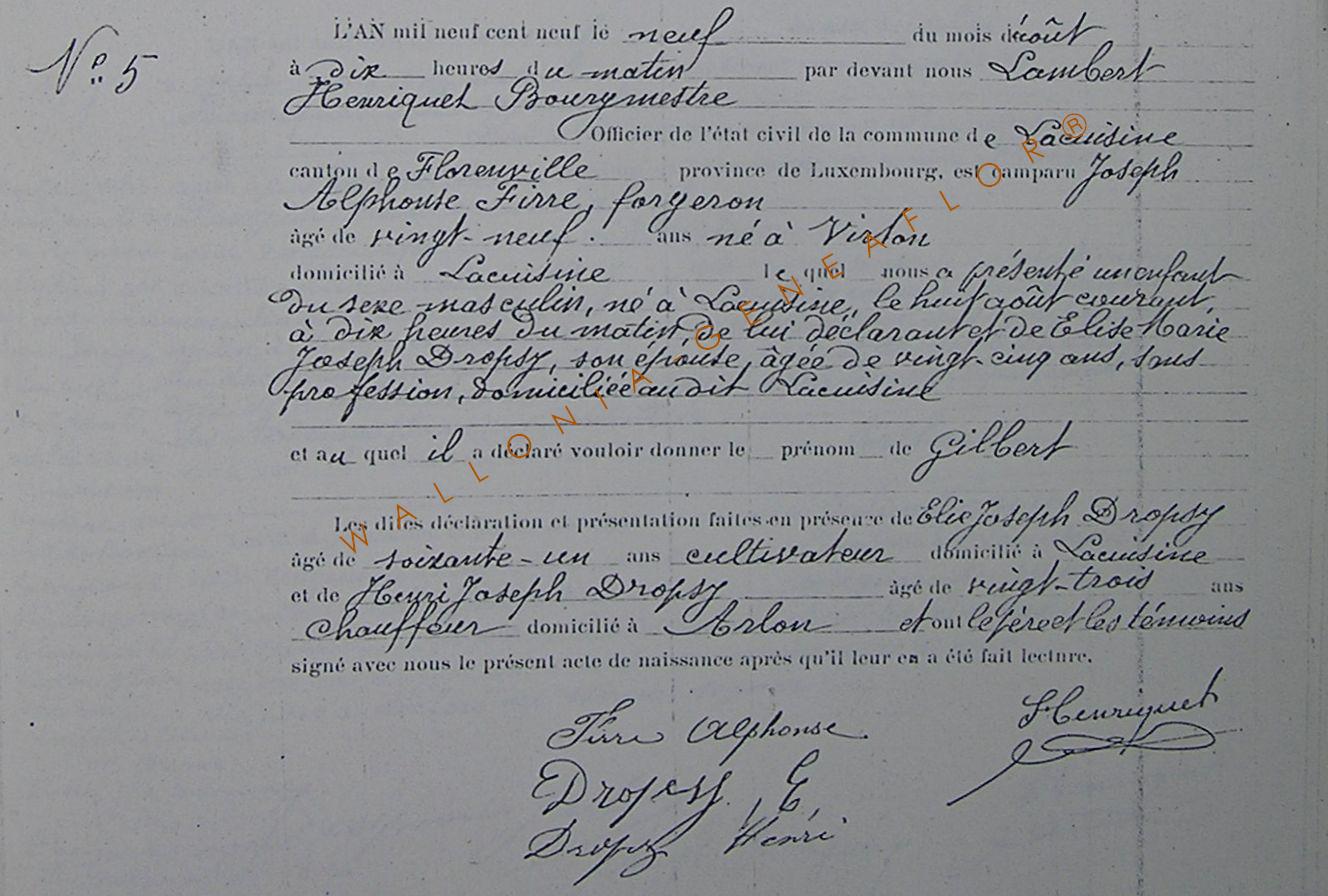 N° 5
L'AN mil neuf cent neuf le neuf du mois d'août
à dix heures du matin par devant nous Lambert
Henriquet Bourgmestre
Officier de l'état civil de la commune de Lacuisine
canton de Florenville province de Luxembourg, est comparu Joseph
Alphonse Firre, forgeron
âgé de vingt-neuf ans né à Virton
domicilié à Lacuisine lequel nous a présenté un enfant
du sexe masculin, né à Lacuisine, le huit août courant,
à dix heures du matin, de lui déclarant et de Elise Marie
Joseph Dropsy, son épouse, âgée de vingt-cinq ans, sans
profession, domiciliée audit Lacuisine
et auquel il a déclaré vouloir donner le prénom de Gilbert
Les dites déclaration et présentation faites en présence de Elie Joseph Dropsy
âgé de soixante-un ans cultivateur domicilié à Lacuisine
et de Henri Joseph Dropsy âgé de vingt-trois ans
chauffeur domicilié à Arlon et ont le père et les témoins
signé avec nous le présent acte de naissance après qu'il leur en a été fait lecture.
Firre Alphonse
LHenriquet
Dropsy E.
Dropsy Henri
WALLONIA-GENEAFLOR®